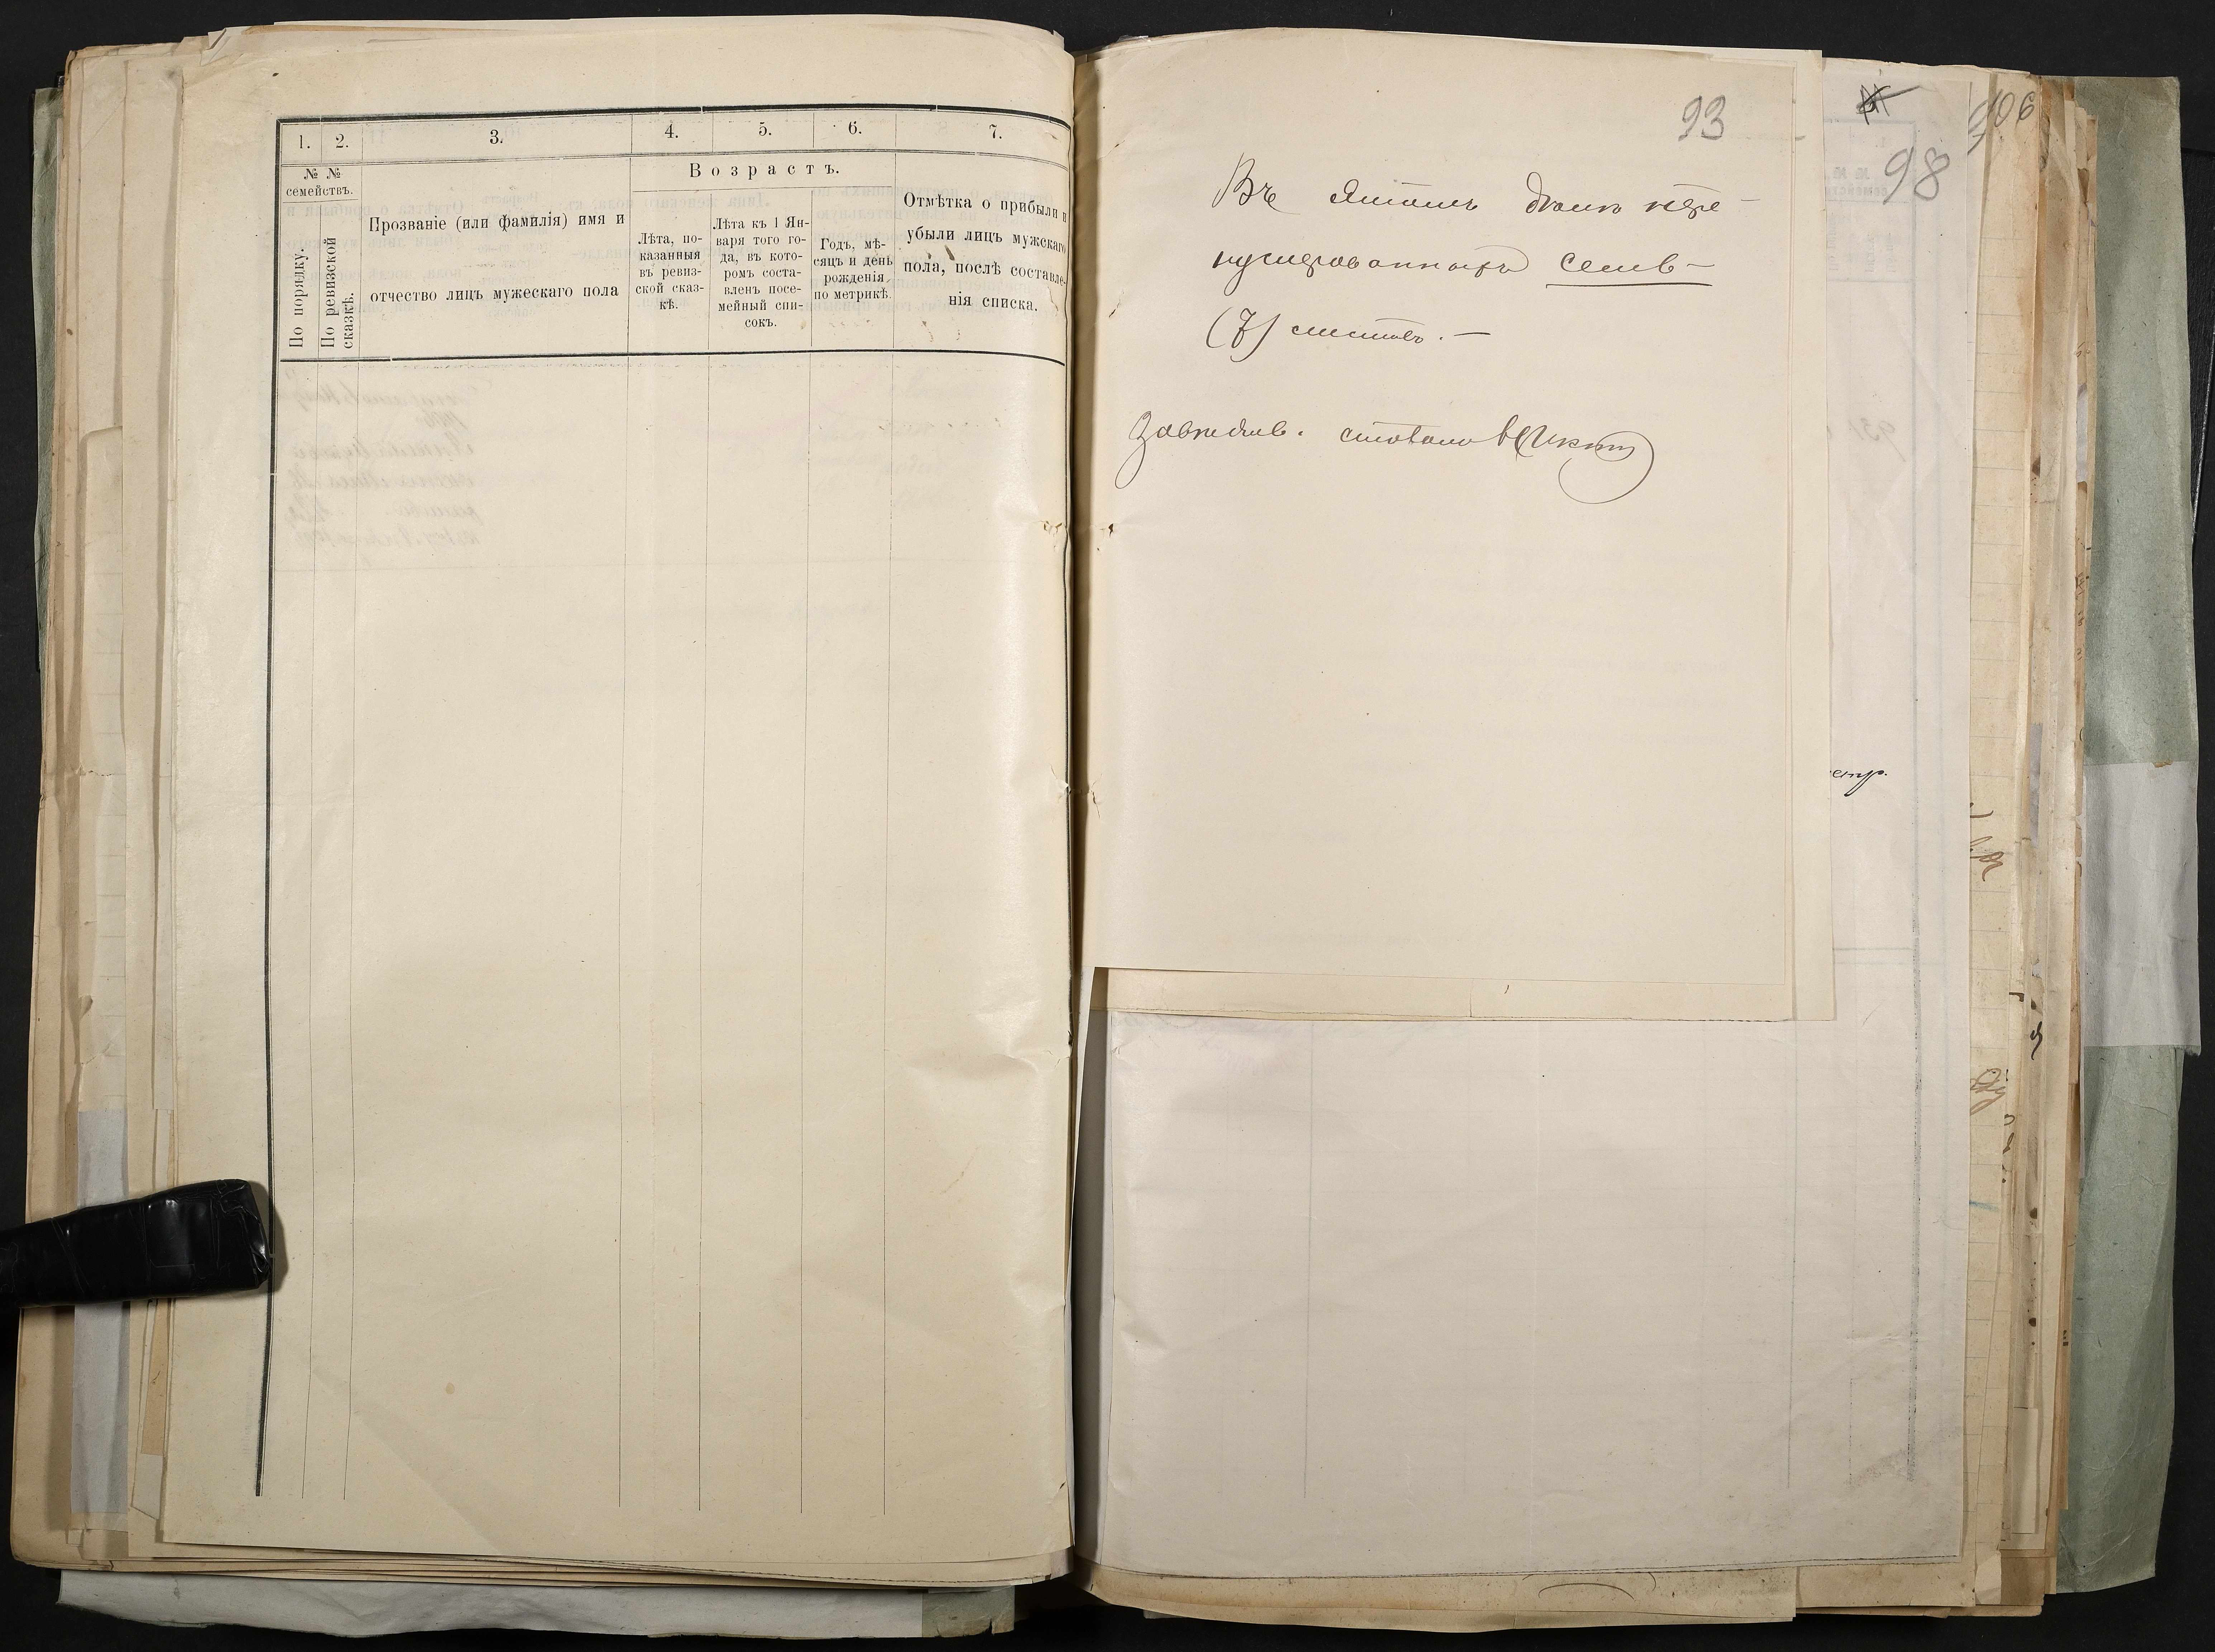 1. 2. 3. 4. 5. 6. 7.
№ № семействъ.
По порядку.
По ревизской сказкѣ.
Прозваніе (или фамилія) имя и
отчество лицъ мужескаго пола
Возрастъ.
Лѣта, по-
казанныя
въ ревиз-
ской сказ-
кѣ.
Лѣта къ 1 Ян-
варя того го-
да, въ кото-
ромъ соста-
вленъ посе-
мейный спи-
сокъ.
Годъ, мѣ-
сяцъ и день
рожденія
по метрикѣ.
Отмѣтка о прибыли и
убыли лицъ мужскаго
пола, послѣ составле-
нія списка.
93
Въ этомъ дѣлѣ пере-
нумерованныхъ семь
(7) листовъ. —
Завѣдыв. столомъ
98
106